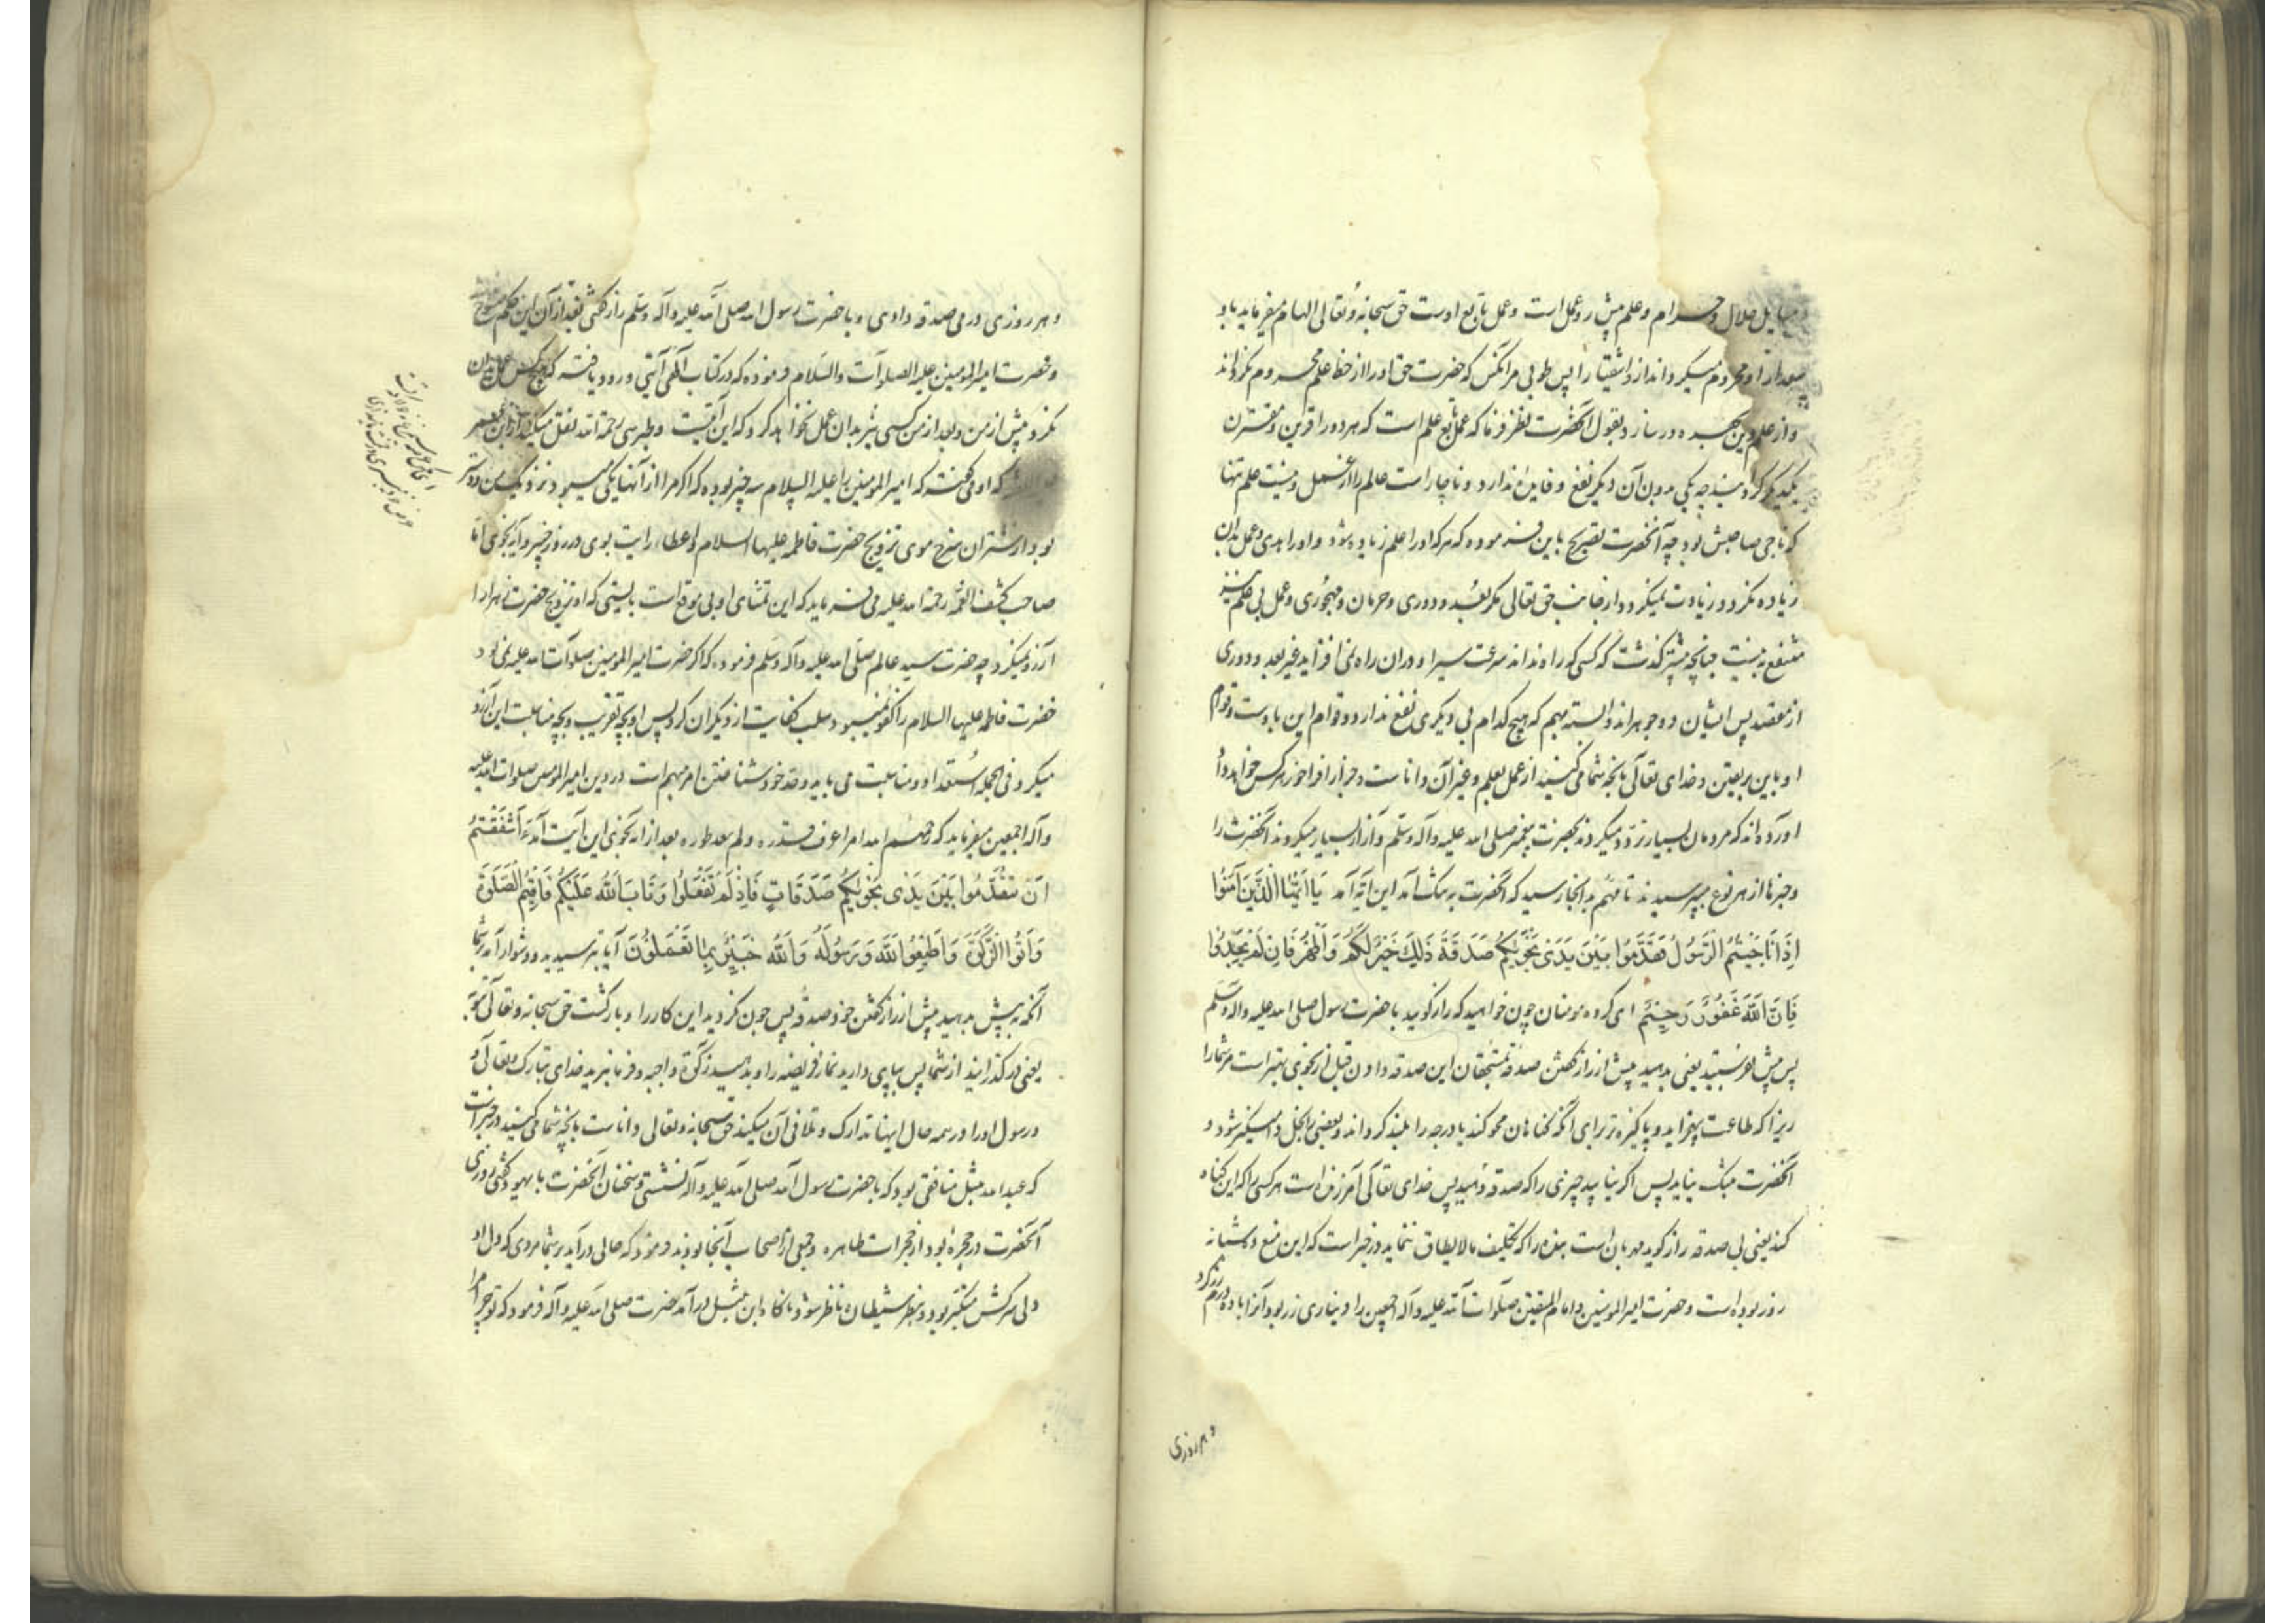 مسایل حلال و حرام و علم پیش رو عمل است و عمل تابع اوست حق سبحانه و تعالی الهام میفرماید باو
سعدا را و محروم میگرداند از او اشقیا را پس طوبی مر آنکس که حضرت حق او را از حظ علم محروم نگرداند
و از علم دین بهره ور سازد بقول آنحضرت نظر فرما که عمل تابع علم است که هر دو را قرین و مقترن
یکدیگر گردانیده چه یکی بدون آن دیگر نفع و فایده ندارد و ناچار است عالم را از عمل و نیست علم تنها
که ناجی صاحبش بود چه آنحضرت تصریح باین فرموده که هر که او را علم زیاده شود و او را هدی و عمل بدان
زیاده نگردد زیادت نمیگردد از جانب حق تعالی مگر بُعد و دوری و حرمان و مهجوری و عمل بی علم نیز
منتفع به نیست چنانچه پیشتر گذشت که کسی که راه نداند سرعت سیر او در آن راه نمی افزاید غیر بعد و دوری
از مقصد پس ایشان دو جوهراند وابسته بهم که هیچ کدام بی دیگری نفع ندارد و قوام این باوست و قوام
او باین بریقین و خدای تعالی بآنچه شما می کنید از عمل بعلم و غیر آن داناست و جزا فراخور هر کس خواهد داد
آورده اند که مردمان بسیار تردد میکردند بحضرت پیغمبر صلی الله علیه وآله وسلم و آزار بسیار میکردند آنحضرت را
و خبرها از هر نوع میپرسیدند تا مهم بدانجا رسید که آنحضرت به تنک آمد این آیه آمد یَا اَیُّهَا الَّذینَ آمَنُوا
اِذَا نَاجَیْتُمُ الرَّسُولَ فَقَدِّمُوا بَیْنَ یَدَیْ نَجْوٰیکُمْ صَدَقَةً ذَلِکَ خَیْرٌ لَکُمْ وَاَطْهَرُ فَاِنْ لَمْ تَجِدُوا
فَاِنَّ اللّٰهَ غَفُورٌ رَحِیمٌ ای گروه مومنان چون خواهید که راز گویید با حضرت رسول صلی الله علیه واله وسلم
پس پیش فرستید یعنی بدهید پیش از راز گفتن صدقه بمستحقان این صدقه دادن قبل از نجوی بهتر است مر شما را
زیرا که طاعت بیفزاید و پاکیزه تر برای آنکه گناهان محو کند یا درجه را بلند گرداند و بعضی را بخل دامنگیر شود و
آنحضرت بتنک نیاید پس اگر نیابید چیزی را که صدقه دهید پس خدای تعالی آمرزنده است هر کسی را که این گناه
کند یعنی بی صدقه راز گوید مهربان است بنده را که تکلیف مالایطاق ننماید در خبر است که این منع ده شبانه
روز بوده است و حضرت امیرالمومنین و امام المتقین صلوات الله علیه وآله اجمعین را دیناری زر بود آنرا بده درم زر کرد
و هر روزی
و هر روزی درمی صدقه دادی و با حضرت رسول الله صلی الله علیه وآله وسلم راز گفتی بعد از آن این حکم منسوخ
و حضرت امیرالمومنین علیه الصلوات والسلام فرموده که در کتاب الهی آیتی ورود یافته که هیچ کس عمل بدان
نکرد پیش از من و بعد از من کسی نیز بدان عمل نخواهد کرد که این آیتست و طبرسی رحمة الله نقل میکند از ابن عمر
که او می گفت که امیرالمومنین را علیه السلام سه چیز بوده که اگر مرا از آنها یکی میبود نزدیک من دوستر
بود از شتران سرخ موی تزویج حضرت فاطمه علیها السلام و عطاء رایت بوی در روز خیبر و آیه نجوی اما
صاحب کشف الغمه رحمة الله علیه می فرماید که این تمنای او بی موقع است بایستی که او تزویج حضرت زهرا را
آرزو نمیکرد چه حضرت سید عالم صلی الله علیه وآله وسلم فرموده که اگر حضرت امیرالمومنین صلوات الله علیه نمی بود
حضرت فاطمه علیها السلام را کفو نمیبود و سلب کفایت از دیگران کرد پس او بچه تقریب و بچه مناسبت این آرزو
میکرد فی الجمله استعداد و مناسبت می باید و قدر خود شناختن امر مهم است در دین امیرالمومنین صلوات الله علیه
وآله اجمعین میفرماید که رحم الله امرا عرف قدره ولم یعد طوره بعد از آیه نجوی این آیت آمد ءَاَشْفَقْتُمْ
اَنْ تُقَدِّمُوا بَیْنَ یَدَیْ نَجْوٰیکُمْ صَدَقَاتٍ فَاِذْ لَمْ تَفْعَلُوا وَتَابَ اللّٰهُ عَلَیْکُمْ فَاَقِیمُوا الصَّلٰوةَ
وَاٰتُوا الزَّکٰوةَ وَاَطِیعُوا اللّٰهَ وَرَسُولَهُ وَاللّٰهُ خَبِیرٌ بِمَا تَعْمَلُونَ آیا بترسیدید و دشوار آمد بر شما
آنکه به پیش بدهید پیش از راز گفتن خود صدقه پس چون نکردید این کار را و بازگشت حق سبحانه و تعالی بتوبه
یعنی درگذرانید از شما پس بپای دارید نماز فریضه را و بدهید زکوة واجبه و فرمان برید خدای تبارک و تعالی را و
رسول او را در همه حال اینها تدارک و تلافی آن میکند حق سبحانه و تعالی داناست بآنچه شما می کنید در خبر است
که عبد الله نبتل منافقی بود که با حضرت رسول الله صلی الله علیه وآله نشستی و سخنان آنحضرت با یهود گفتی روزی
آنحضرت در حجره بود از حجرات طاهره و جمعی از اصحاب آنجا بودند فرمود که حالی در آید بر شما مردی که دل او
دل سرکش متکبر بود و بنظر شیطان ناظر شود ناگاه ابن نبتل درآمد حضرت صلی الله علیه وآله فرمود که تو چرا مرا